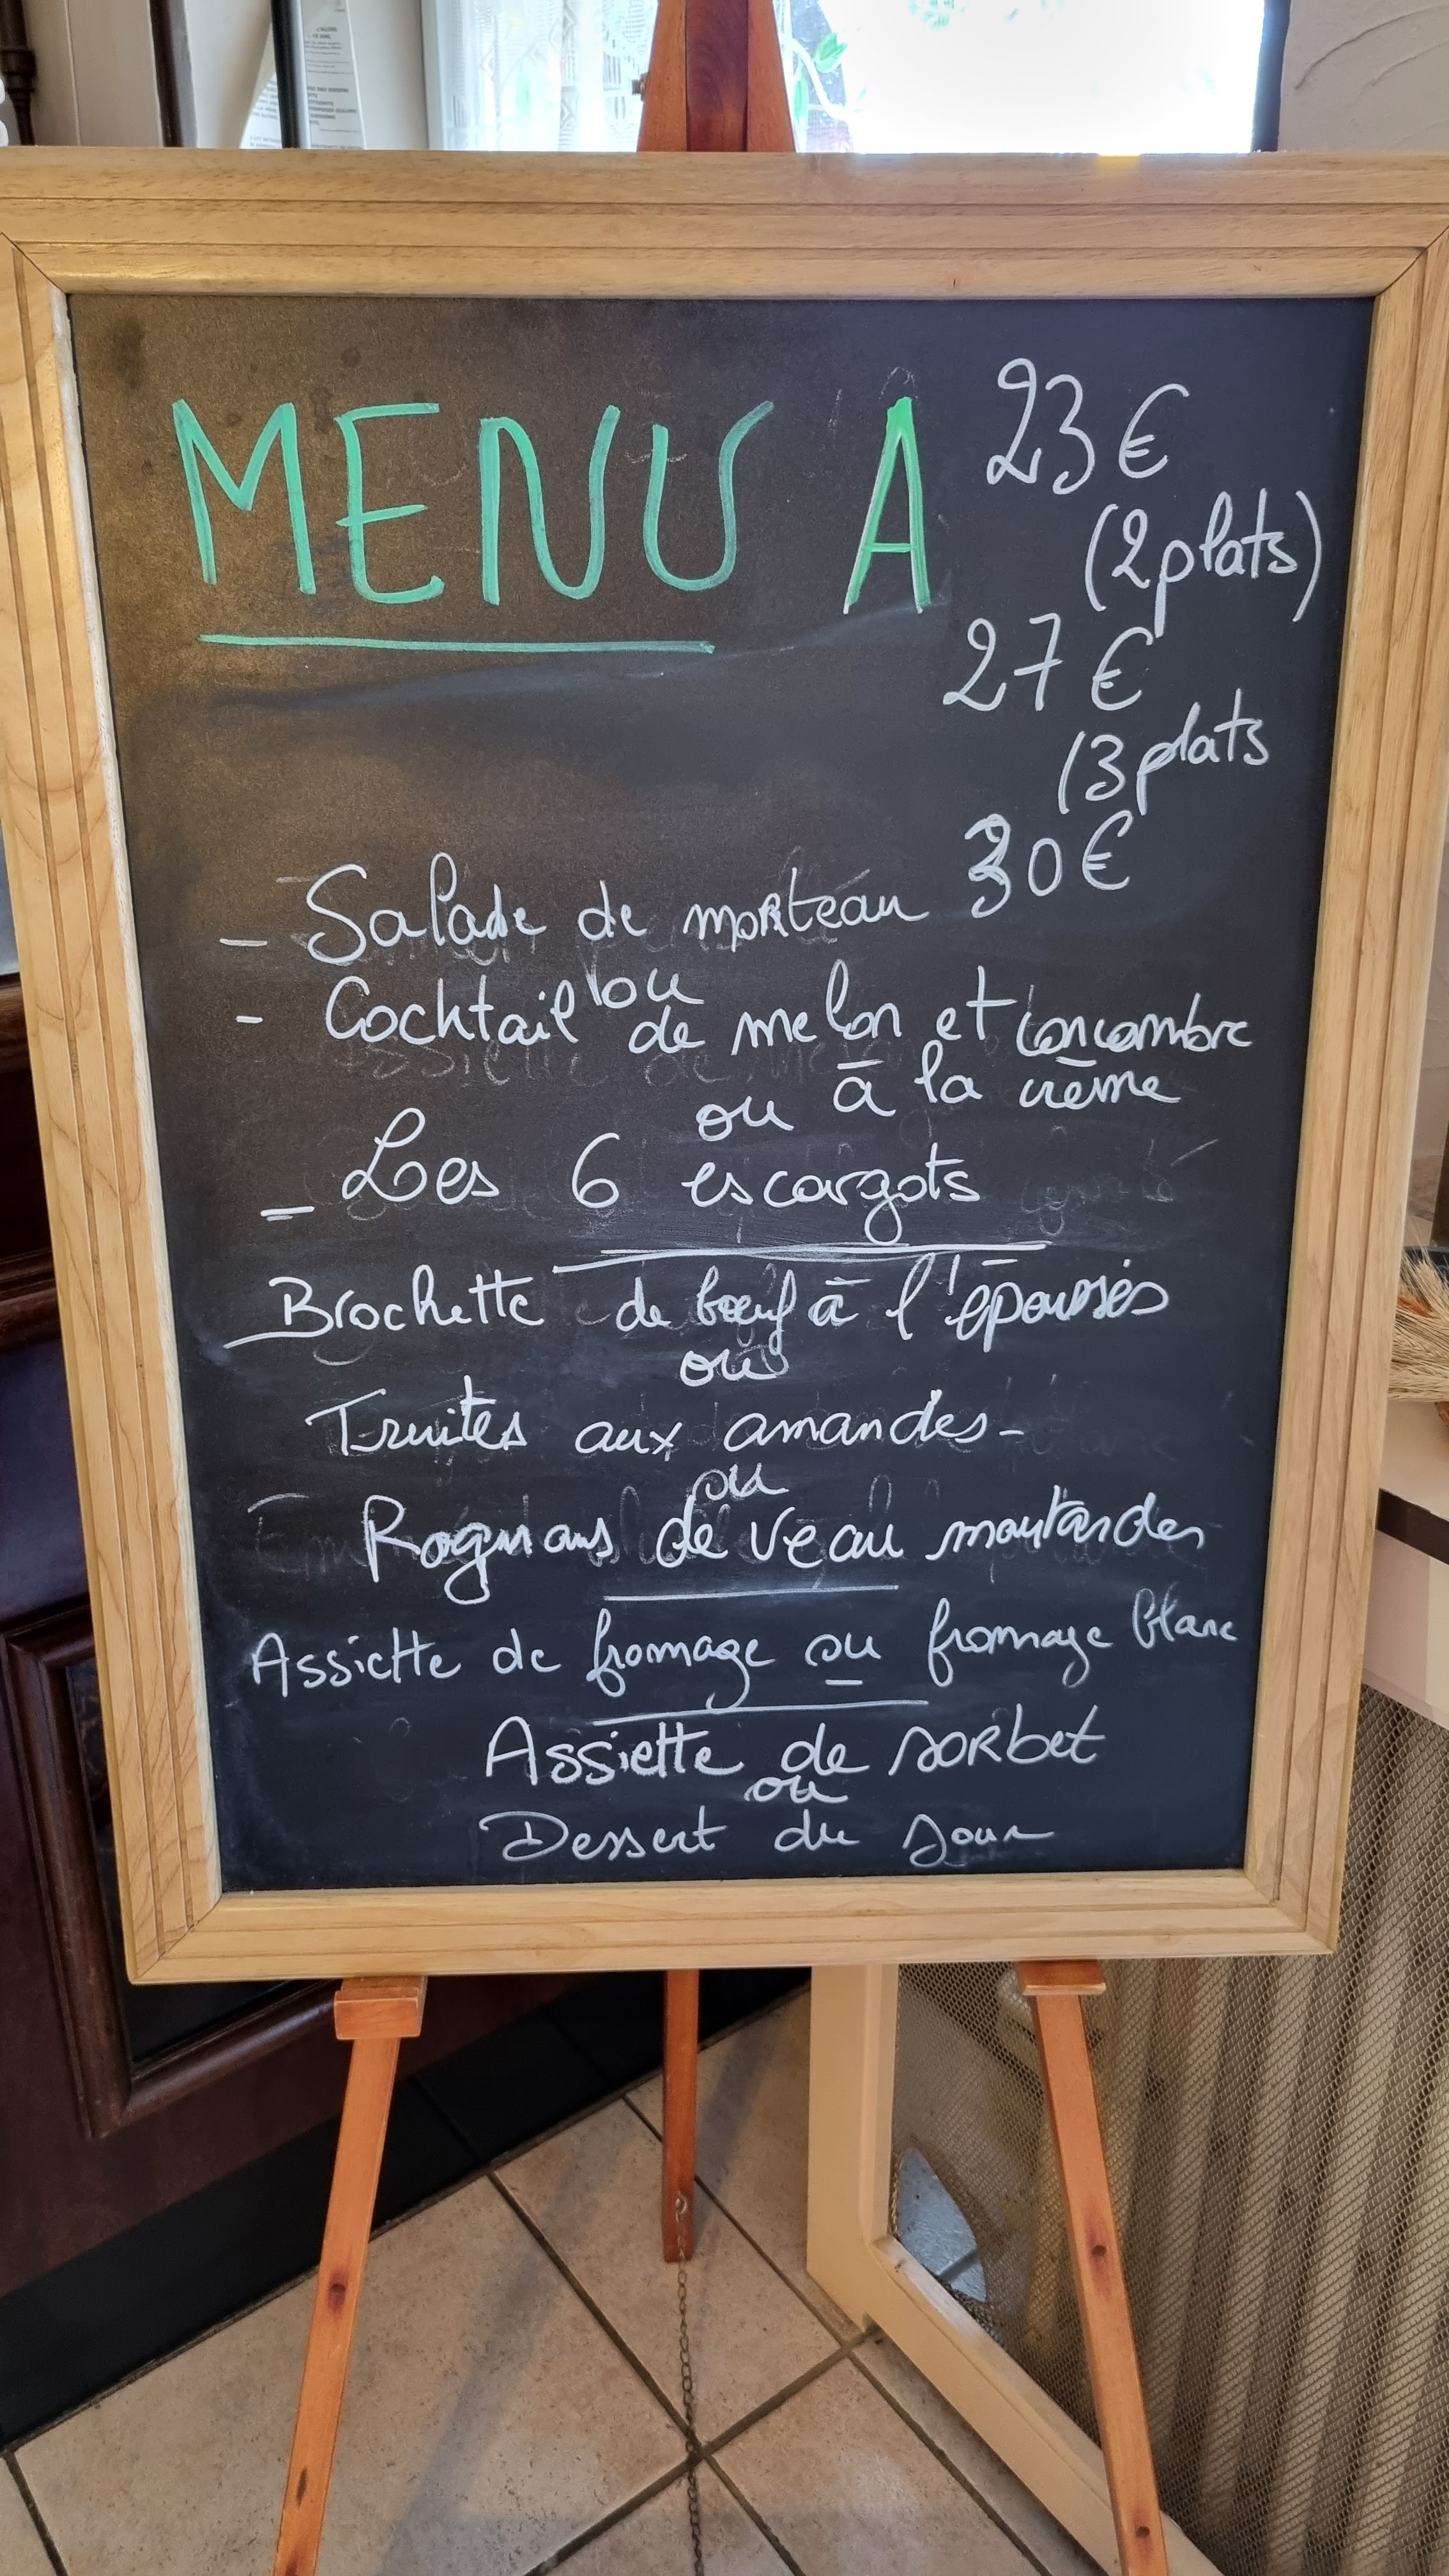 MENU A 23€
(2 plats)
27€
(3 plats
30€
- Salade de morteau
ou
- Cocktail de melon et concombre
à la crème
ou
- Les 6 escargots
Brochette de bœuf à l'époisses
ou
Truites aux amandes -
ou
Rognons de veau moutarde
Assiette de fromage ou fromage blanc
Assiette de sorbet
ou
Dessert du Jour